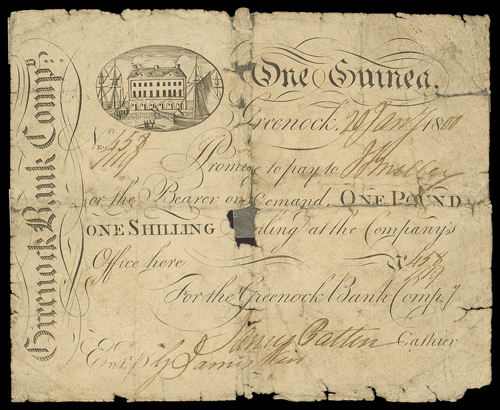 Greenock Bank Compy.
One Guinea.
Greenock, 20 Jany 1800
No. 458
Promise to pay to
or the Bearer on Demand, ONE POUND
ONE SHILLING Sterling at the Company's
Office here
No. 458
For the Greenock Bank Compy.
James Patten Cashier
Entd. James Weir